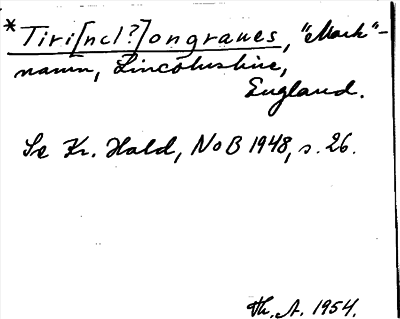 *Tiri[ncl?]ongraues, "Mark"-
namn, Lincolnshire,
England.
Se Kr. Hald, NoB 1948, s. 26.
Th. A. 1954.